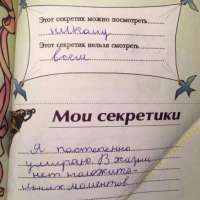 Этот секретик можно посмотреть
никому
Этот секретик нельзя смотреть
всем
Мои секретики
Я постепенно
умираю. В жизни
нет положите-
льных моментов